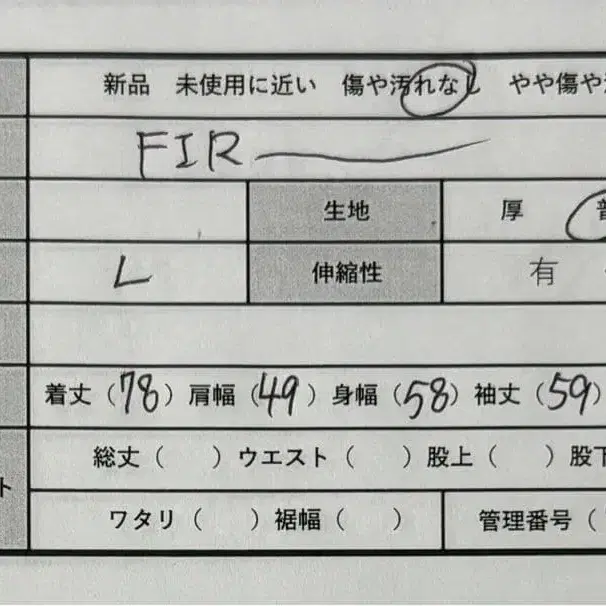 新品 未使用に近い 傷や汚れなし やや傷や
FIR
生地 厚 普
L 伸縮性 有
着丈（78）肩幅（49）身幅（58）袖丈（59）
総丈（ ）ウエスト（ ）股上（ ）股下
ト
ワタリ（ ）裾幅（ ） 管理番号（